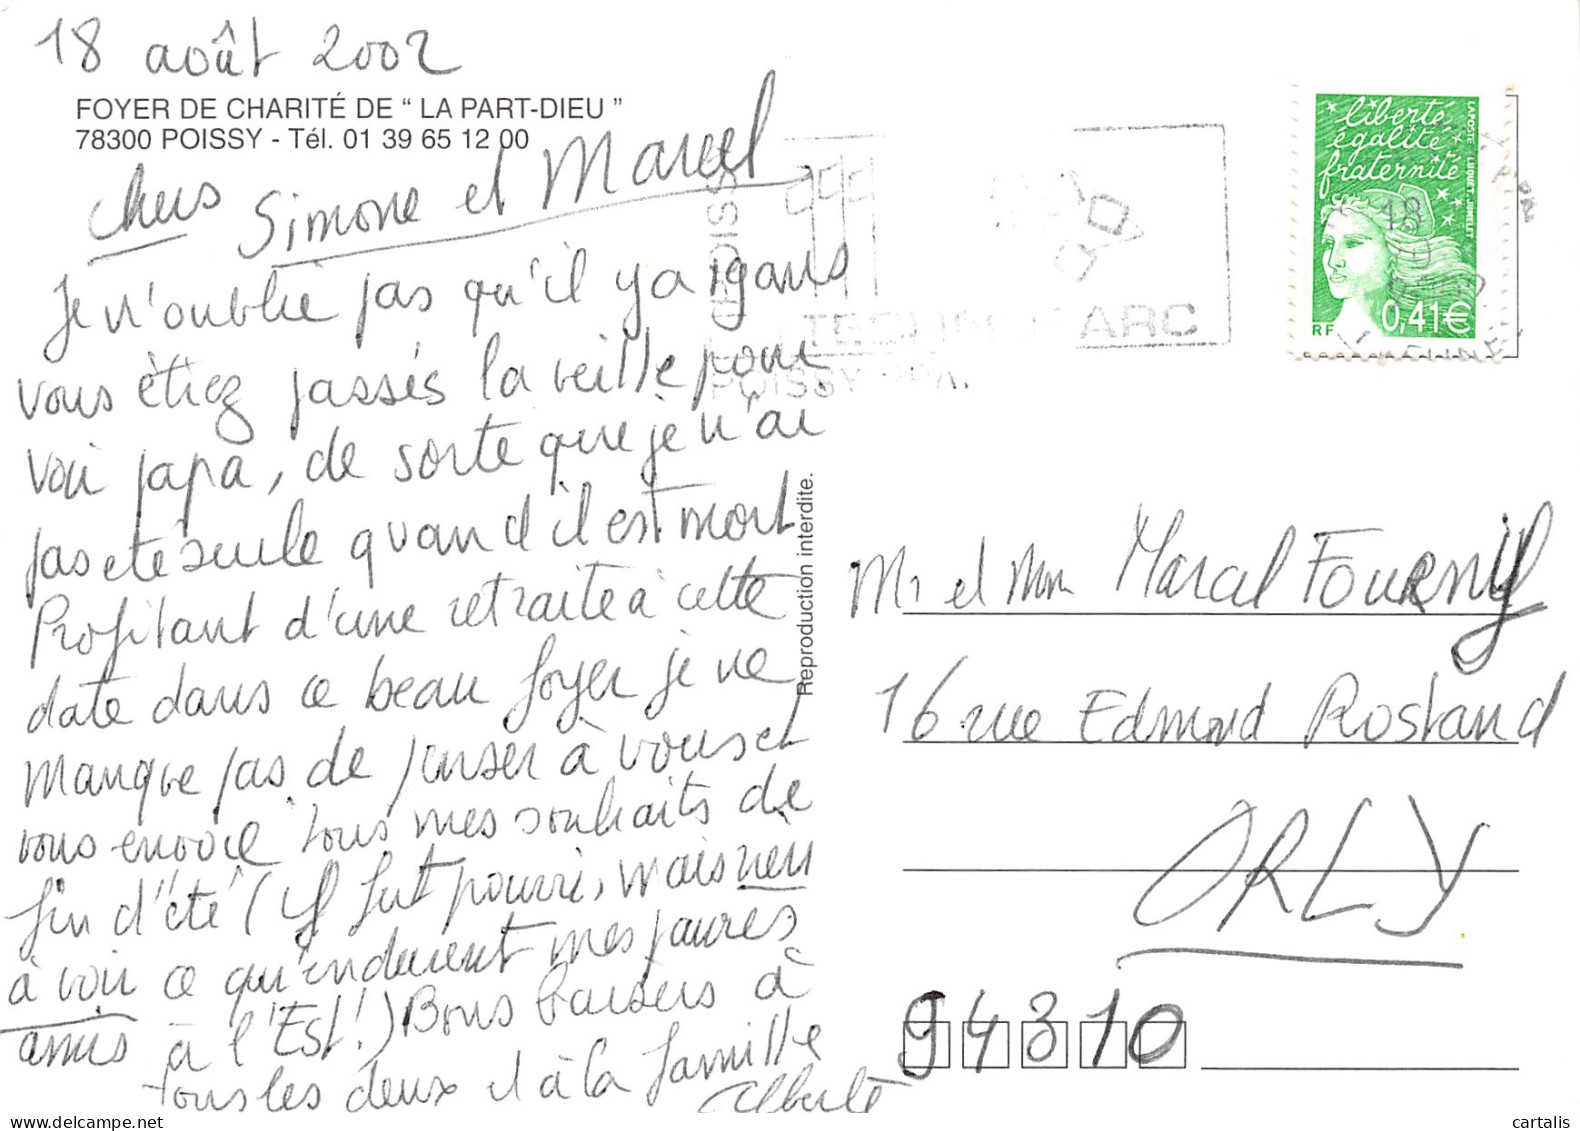 18 août 2002
FOYER DE CHARITÉ DE " LA PART-DIEU "
78300 POISSY - Tél. 01 39 65 12 00
Chers Simone et Marcel
Je n'oublie pas qu'il y a 19 ans
vous étiez passés la veille pour
voir papa, de sorte que je n'ai
pas été seule quand il est mort
Profitant d'une retraite à cette
date dans ce beau foyer je ne
manque pas de penser à vous et
vous envoie tous mes souhaits de
fin d'été (Il fut pourri, mais rien
à voir ce qu'endurent mes pauvres
amis à l'Est!) Bons baisers à
tous les deux et à la famille
Alberte
Reproduction interdite.
POISSY
ARC
liberté
égalité
fraternité
LA POSTE LUQUET-JUMELET
18
RF 0,41€
Mr et Mm Marcel FOURNY
16 rue Edmond Rostand
ORLY
94310
www.cartalis.com
cartalis